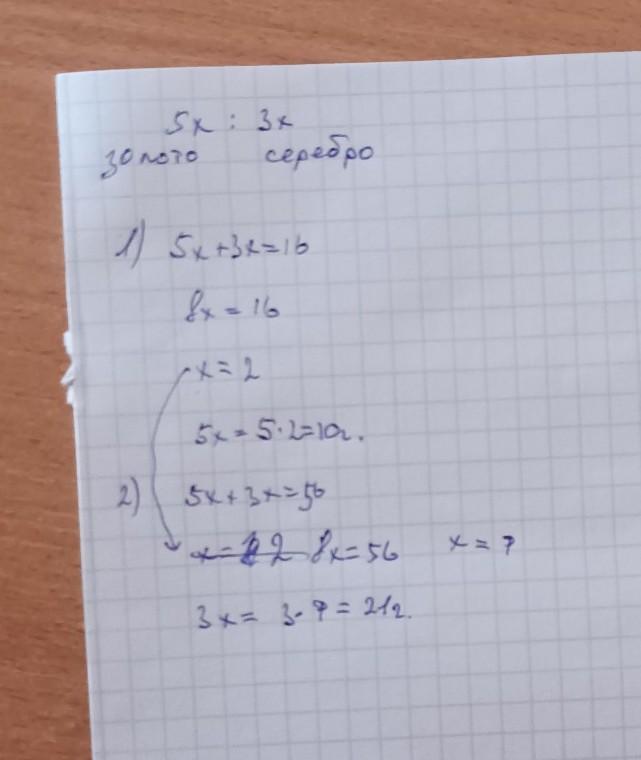 5x : 3x
золото серебро
1) 5x+3x=16
8x = 16
x = 2
5x = 5·2=10г.
2) 5x+3x=56
x = 2 8x=56 x = 7
3x = 3·7 = 21г.